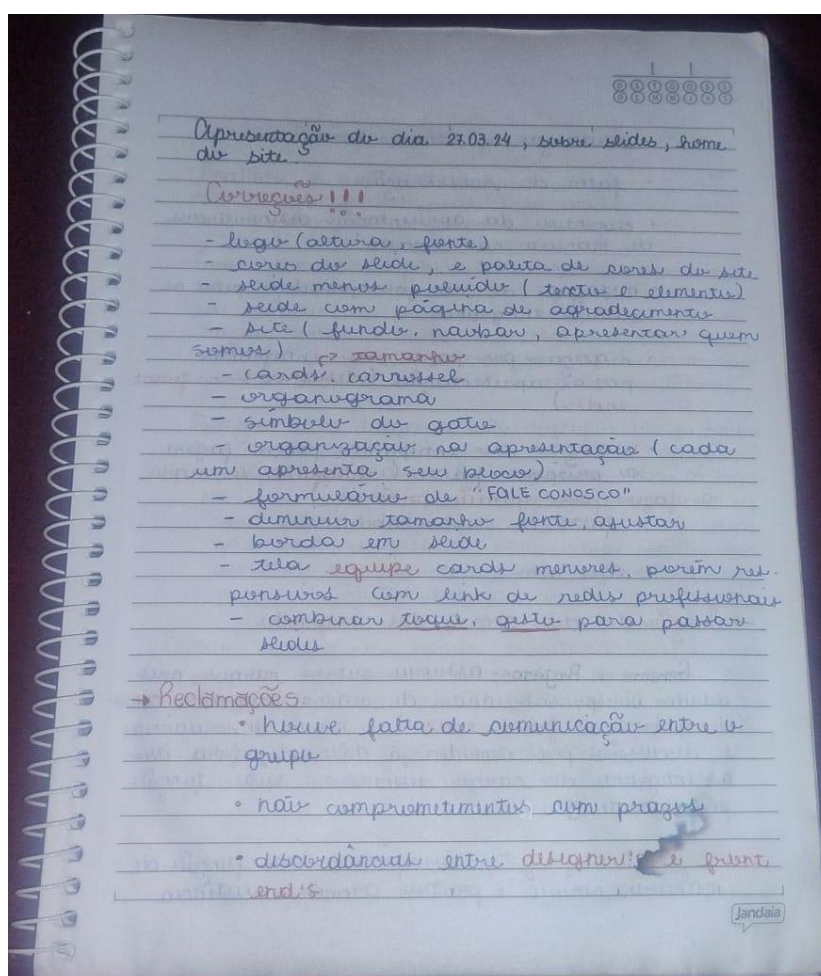 Apresentação do dia 27.03.24, sobre slides, home
do site.
Correções!!!
- logo (altura, fonte)
- cores do slide, e paleta de cores do site
- slide menos poluído (textos e elementos)
- slide com página de agradecimento
- site (fundo, navbar, apresentar quem
somos) → tamanho
- cards, carrossel
- organograma
- símbolo do gato
- organização na apresentação (cada
um apresenta (seu bloco)
- formulário de "FALE CONOSCO"
- diminuir tamanho fonte, ajustar
- borda em slide
- tela equipe cards menores, porém res-
ponsivos com link de redes profissionais
- combinar toque, gesto para passar
slides
→ Reclamações
• houve falta de comunicação entre o
grupo
• não comprometimentos com prazos
• discordâncias entre designer's e front
end's
Jandaia